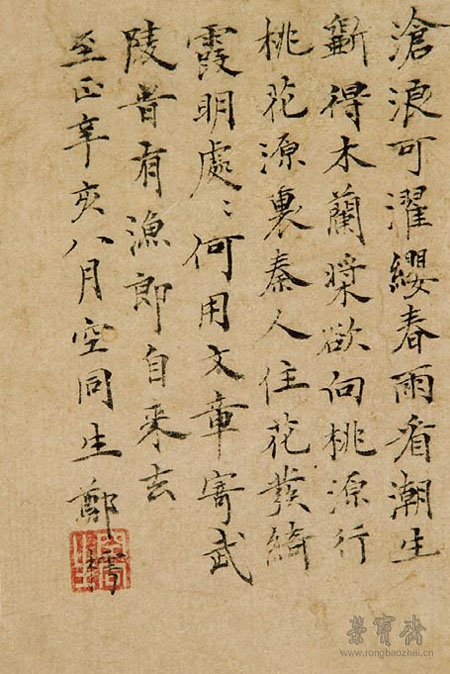 滄浪可濯纓春雨看潮生
斲得木蘭槳欲向桃源行
桃花源裏秦人住花發綺
霞明處〻何用文章寄武
陵昔有漁郎自来去
至正辛亥八月空同生鄭
榮寶齋
www.rongbaozhai.cn